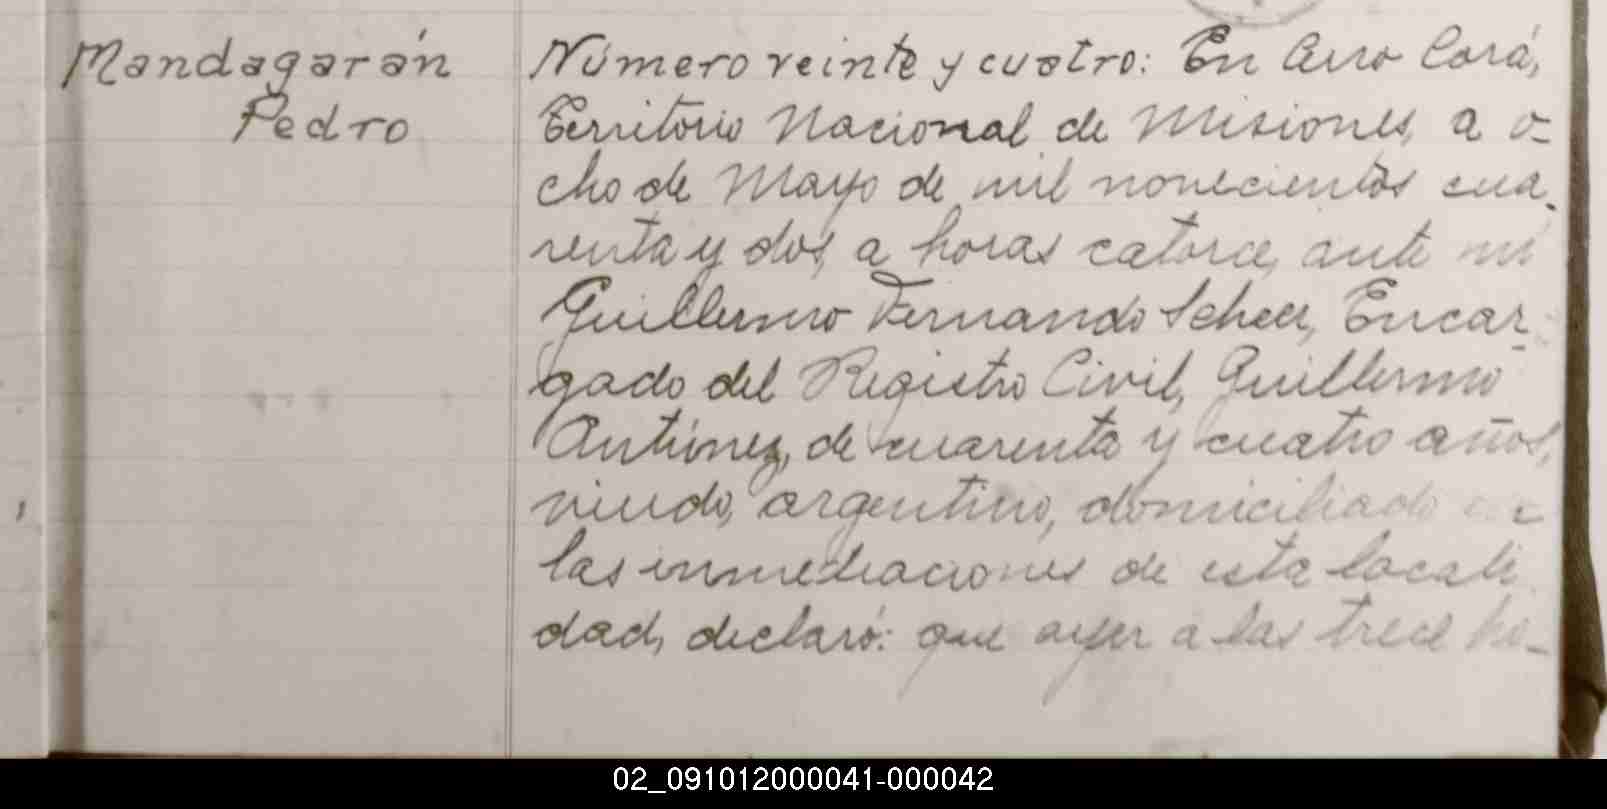 Mandagarán
Pedro
Número veinte y cuatro: En Cerro Corá,
Territorio Nacional de Misiones, a o-
cho de Mayo de mil novecientos cua-
renta y dos, a horas catorce, ante mí
Guillermo Fernando Scheer, Encar-
gado del Registro Civil, Guillermo
Antúnez, de cuarenta y cuatro años,
viudo, argentino, domiciliado en
las inmediaciones de esta locali
dad, declaró: que ayer a las trece ho-
02_091012000041-000042